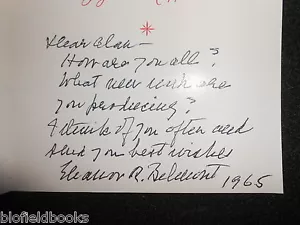 Dear Alan –
How are you all?
What new work are
you producing?
I think of you often and
send you best wishes
Eleanor R. Belmont 1965
blofieldbooks